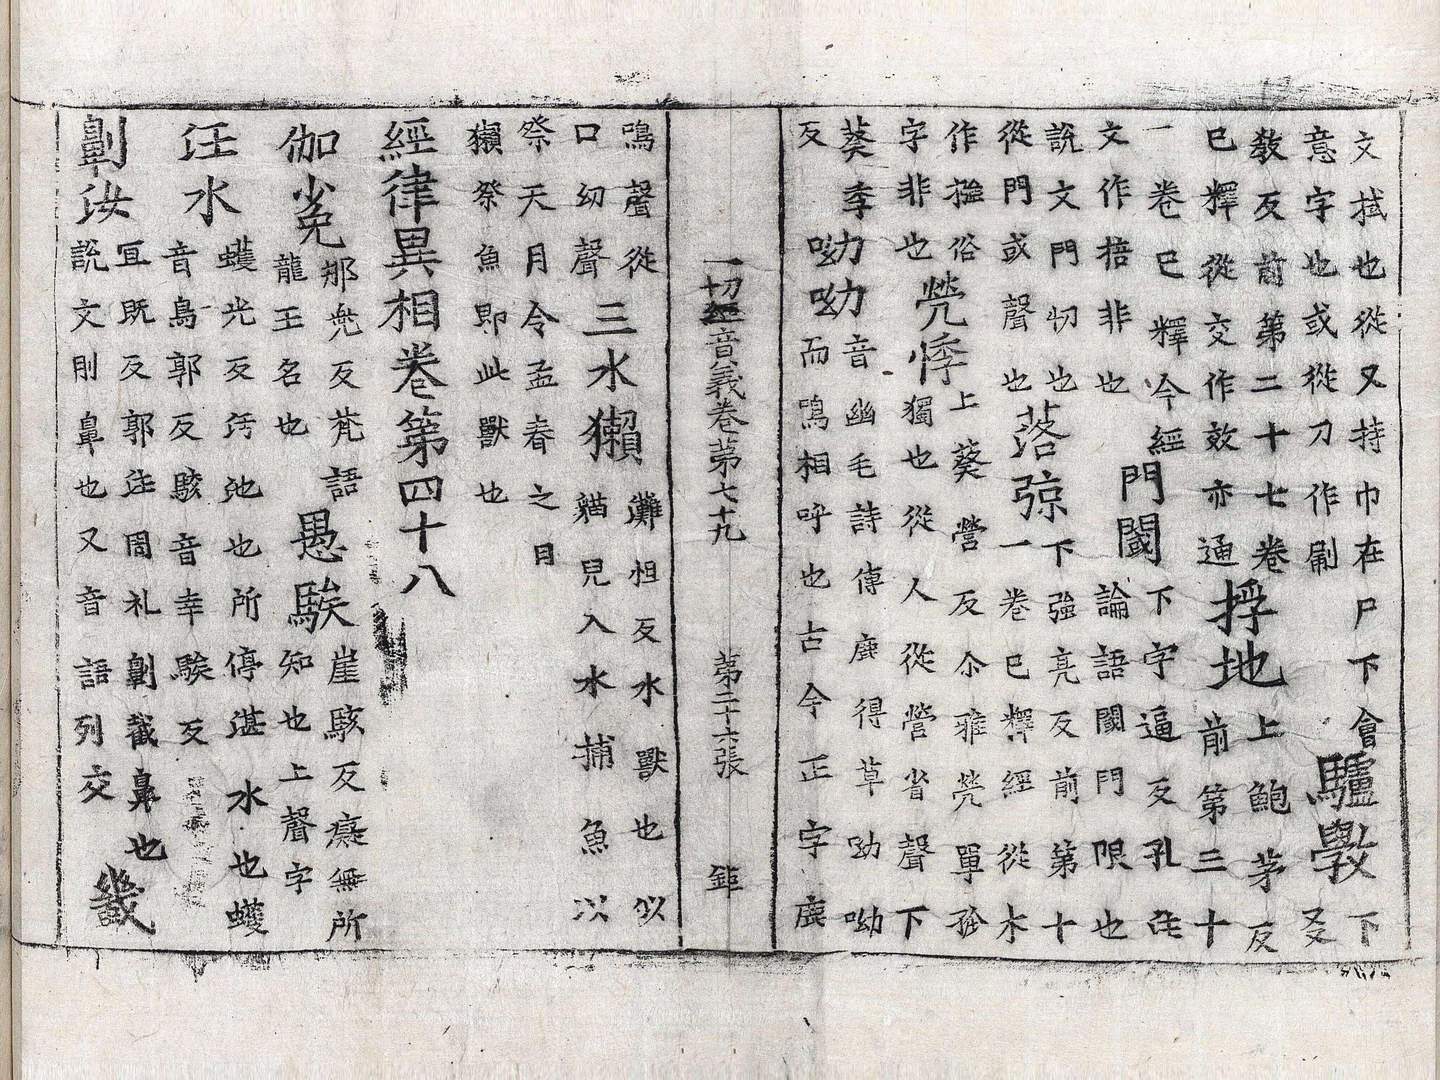 文拭也從又持巾在尸下會
意字也或從刀作刷
驢斆
下
又
教反前第二十七卷
已釋從交作效亦通
捊地
上鮑茅反
前第三十
一卷已釋今經
文作捂非也
門閾
下字逼反孔注
論語閾門限也
說文門切也
從門或聲也
落弶
下強亮反前第十
一卷已釋經從木
作摾俗
字非也
煢悸
上葵營反尒雅煢單孤
獨也從人從營省聲下
葵季
反
呦呦
音幽毛詩傳鹿得草呦呦
而鳴相呼也古今正字鹿
一切經音義卷第七十九 第三十六張 鉅
鳴聲從
口幼聲
三水獺
灘怛反水獸也似
猫兒入水捕魚以
祭天月令孟春之月
獺祭魚即此獸也
經律異相卷第四十八
伽㝹
那兠反梵語
龍王名也
愚騃
崖駭反癡無所
知也上聲字
汪水
蠖光反汚池也所停湛水也蠖
音烏郭反駭音幸騃反
劓汝
宜既反郭注周礼劓截鼻也
說文刖鼻也又音語列交
畿